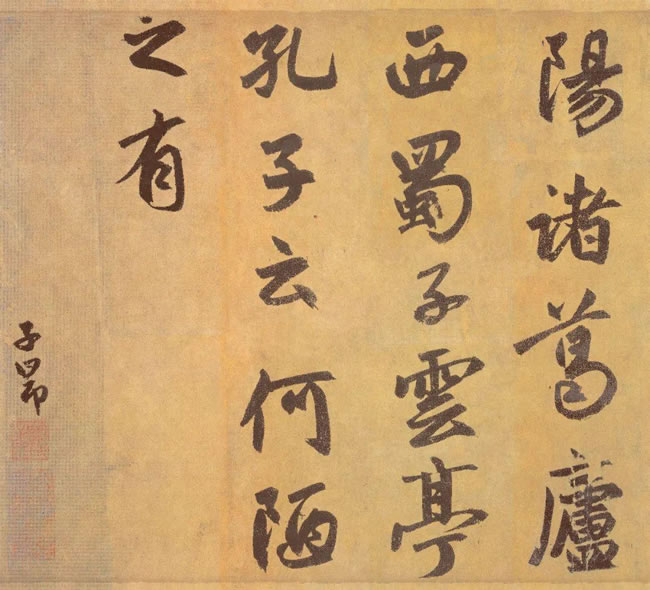 陽諸葛廬
西蜀子雲亭
孔子云何陋
之有
子昂